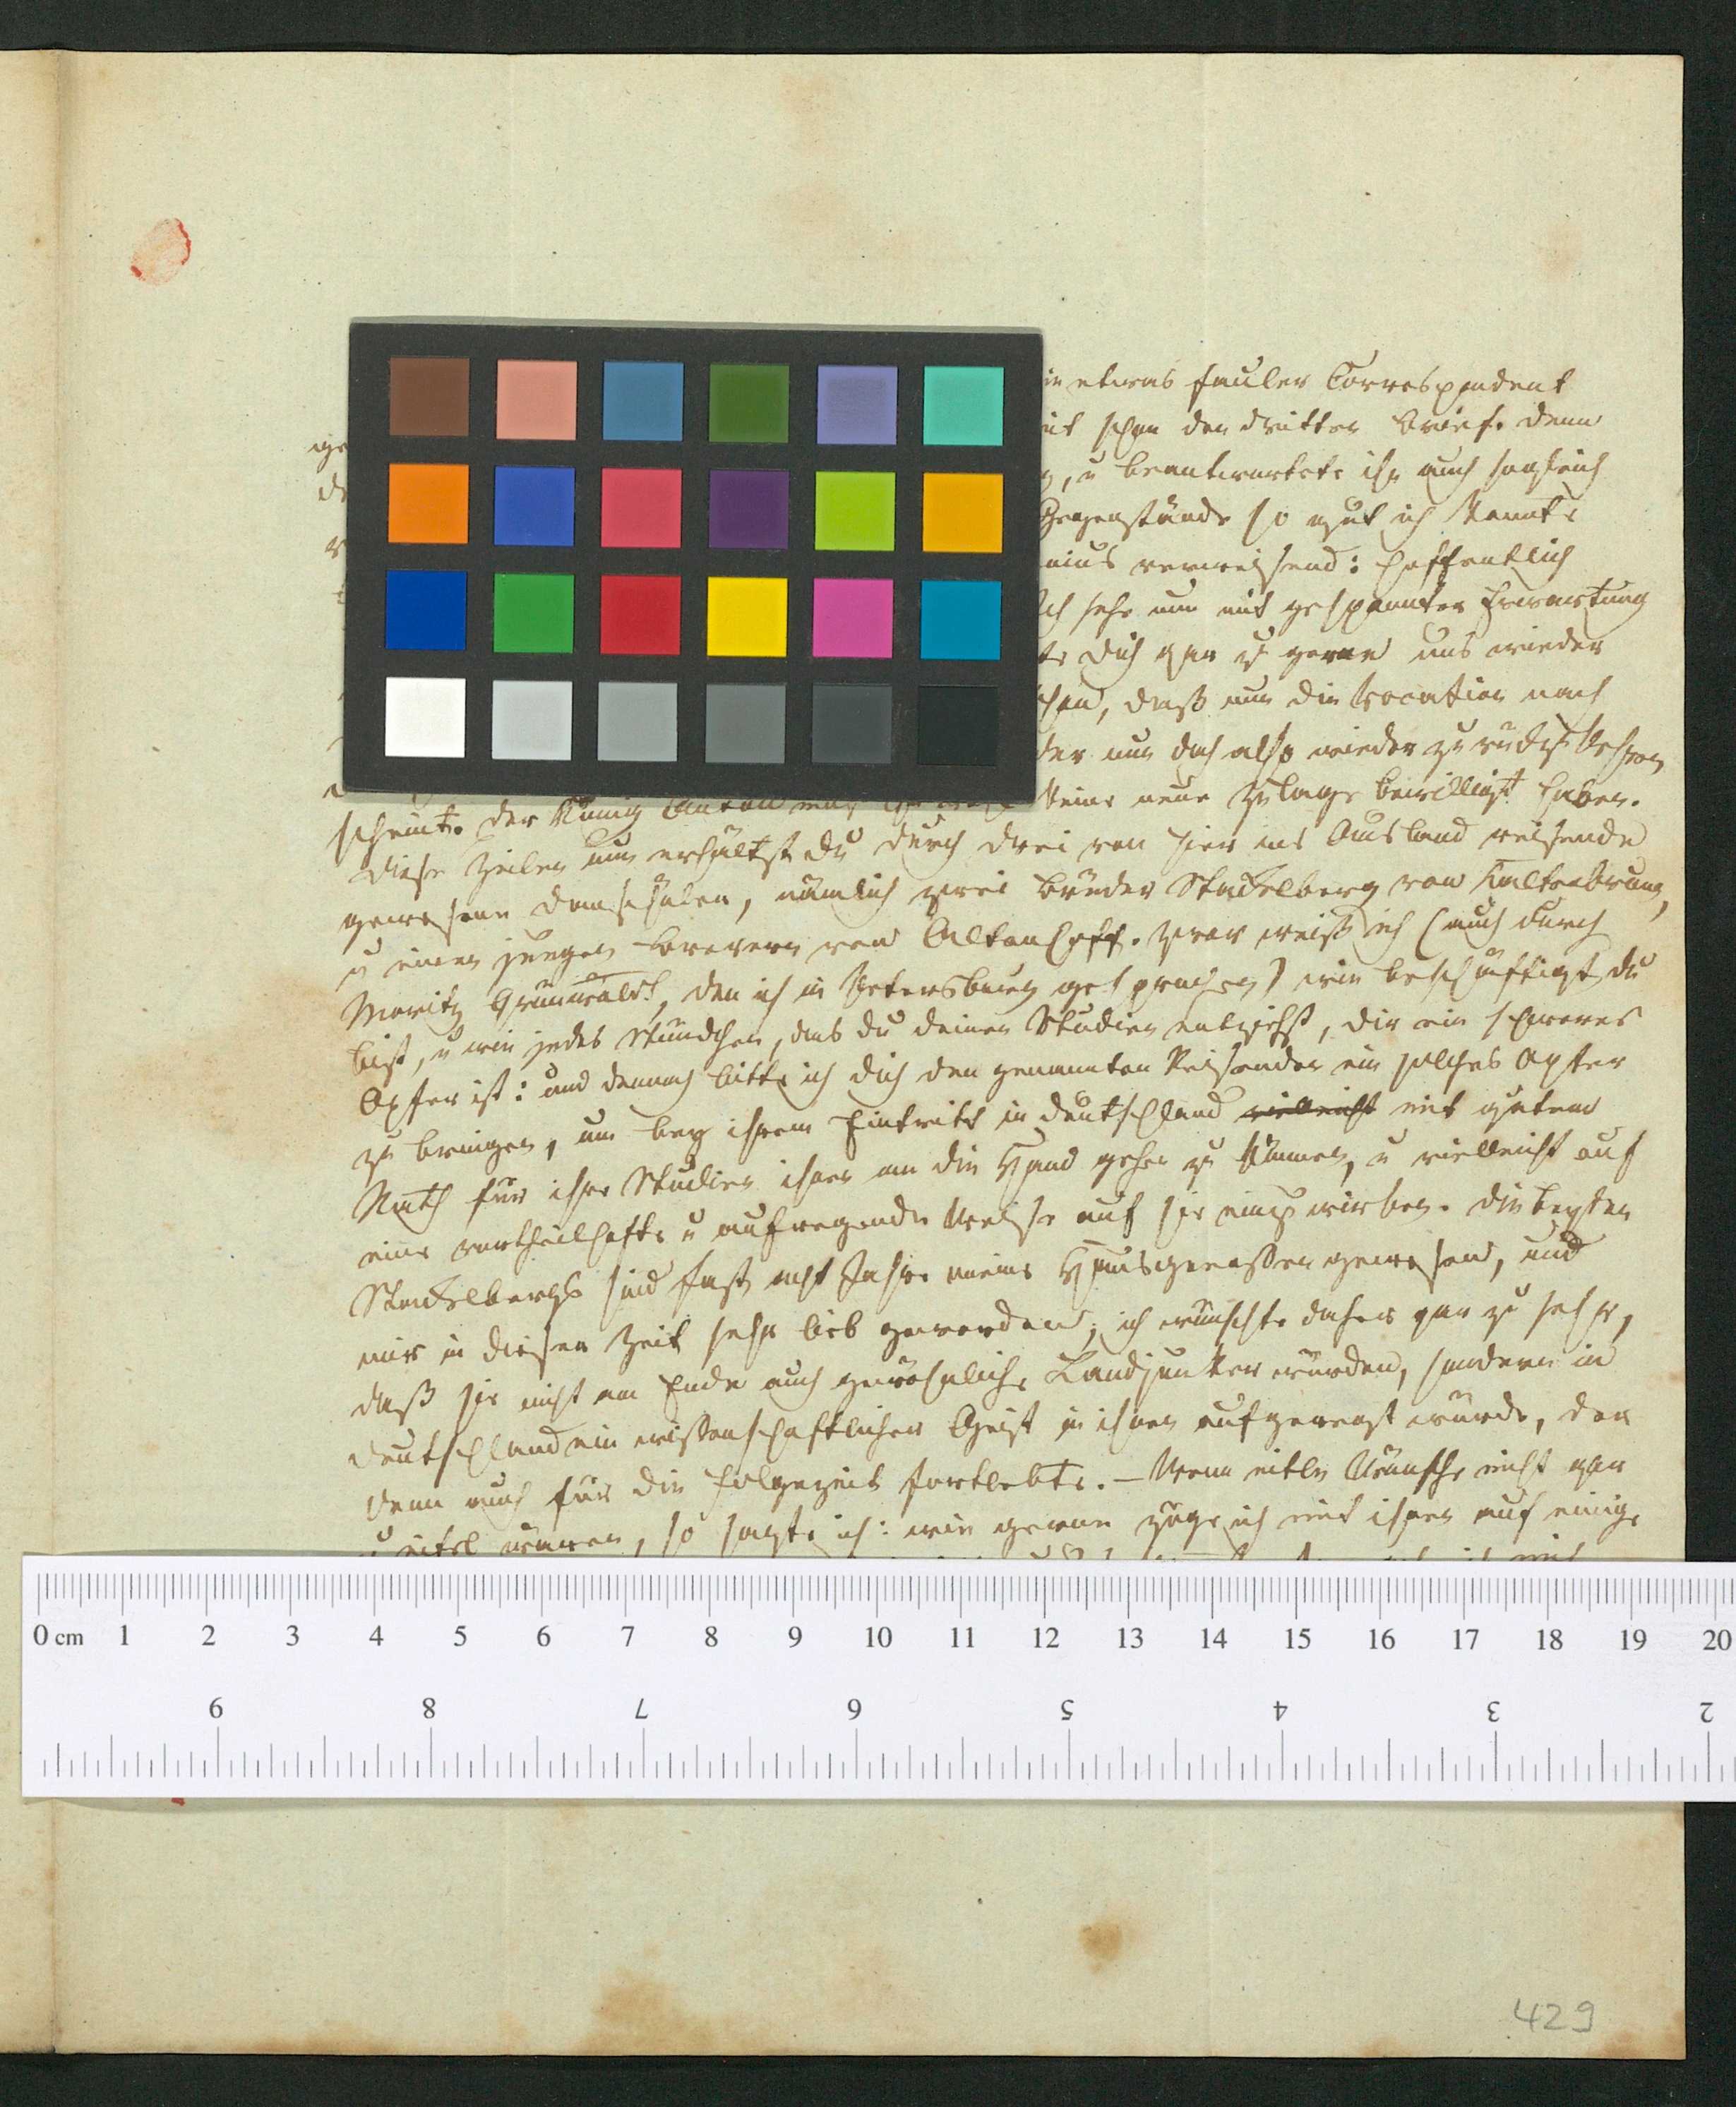 etwas fauler Correspondent
ge schon der dritte Brief. Denn
u beantwortete ihn auch sogleich
Gegenstände so gut ich konnte
verweisend: hoffentlich
sehe nun mit gespannter Erwartung
Dich gar zu gerne uns wieder
daß nun die Vocation nach
nun doch also wieder zurückzukehren
scheint. Der König Anton mag keine neue Zulage bewilligt haben.
Diese Zeilen nun erhältst Du durch drei von hier ins Ausland reisende
gewesene Domschüler, nämlich zwei Brüder Stackelberg von Kaltenbrunn,
u einen jungen Brevern von Altenhoff. Zwar weiß ich (auch durch
Moritz Grünwaldt, den ich in Petersburg gesprochen) wie beschäftigt Du
bist, u wie jedes Stündchen, das Du Deinen Studien entziehst, Dir ein schweres
Opfer ist: und dennoch bitte ich Dich den genannten Reisenden ein solches Opfer
zu bringen, um bey ihrem Eintritt in Deutschland vielleicht mit gutem
Rath für ihre Studien ihnen an die Hand gehen zu können, u vielleicht auf
eine vortheilhafte u aufregende Weise auf sie einzuwirken. Die beyden
Stackelbergs sind fast acht Jahre meine Hausgenossen gewesen, und
mir in dieser Zeit sehr lieb geworden; ich wünschte daher gar zu sehr,
daß sie nicht am Ende auch gewöhnliche Landjunker würden, sondern in
Deutschland ein wissenschaftlicher Geist in ihnen aufgeregt würde, der
denn auch für die Folgezeit fortlebte. – Wenn eitle Wünsche nicht gar
zu eitel wären, so sagte ich: wie gerne zöge ich mit ihnen auf einige
0 cm 1 2 3 4 5 6 7 8 9 10 11 12 13 14 15 16 17 18 19 20
9 8 7 6 5 4 3 2
429